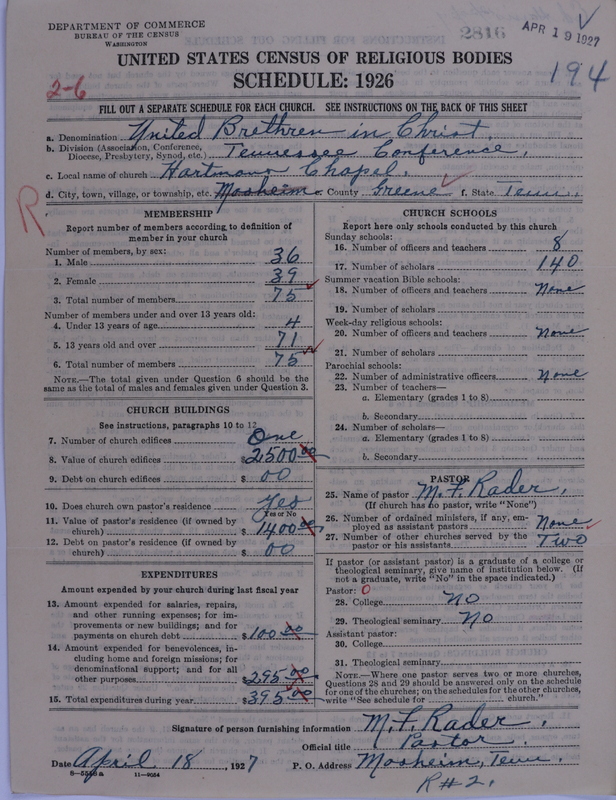 DEPARTMENT OF COMMERCE
BUREAU OF THE CENSUS
WASHINGTON
2816
APR 19 1927
194
UNITED STATES CENSUS OF RELIGIOUS BODIES
SCHEDULE: 1926
2-6
FILL OUT A SEPARATE SCHEDULE FOR EACH CHURCH. SEE INSTRUCTIONS ON THE BACK OF THIS SHEET
a. Denomination United Brethren in Christ.
b. Division (Association, Conference,
Diocese, Presbytery, Synod, etc.) Tennessee Conference.
c. Local name of church Hartman Chapel.
d. City, town, village, or township, etc. Mosheim e. County Greene f. State Tenn.
R
MEMBERSHIP
Report number of members according to definition of
member in your church
Number of members, by sex:
1. Male 36
2. Female 39
3. Total number of members 75
Number of members under and over 13 years old:
4. Under 13 years of age 4
5. 13 years old and over 71
6. Total number of members 75
NOTE.—The total given under Question 6 should be the
same as the total of males and females given under Question 3.
CHURCH BUILDINGS
See instructions, paragraphs 10 to 12
7. Number of church edifices One
8. Value of church edifices $2500 00
9. Debt on church edifices $ 00
10. Does church own pastor's residence Yes
Yes or No
11. Value of pastor's residence (if owned by
church) $1400 00
12. Debt on pastor's residence (if owned by
church) $ 00
EXPENDITURES
Amount expended by your church during last fiscal year
13. Amount expended for salaries, repairs,
and other running expenses; for im-
provements or new buildings; and for
payments on church debt $100 00
14. Amount expended for benevolences, in-
cluding home and foreign missions; for
denominational support; and for all
other purposes $295 00
15. Total expenditures during year $395 00
CHURCH SCHOOLS
Report here only schools conducted by this church
Sunday schools:
16. Number of officers and teachers 8
17. Number of scholars 140
Summer vacation Bible schools:
18. Number of officers and teachers None
19. Number of scholars
Week-day religious schools:
20. Number of officers and teachers None
21. Number of scholars
Parochial schools:
22. Number of administrative officers None
23. Number of teachers—
a. Elementary (grades 1 to 8)
b. Secondary
24. Number of scholars—
a. Elementary (grades 1 to 8)
b. Secondary
PASTOR
25. Name of pastor M. F. Rader,
(If church has no pastor, write "None")
26. Number of ordained ministers, if any, em-
ployed as assistant pastors None
27. Number of other churches served by the
pastor or his assistants Two
If pastor (or assistant pastor) is a graduate of a college or
theological seminary, give name of institution below. (If
not a graduate, write "No" in the space indicated.)
Pastor: 0
28. College No
29. Theological seminary No
Assistant pastor:
30. College
31. Theological seminary
NOTE.—Where one pastor serves two or more churches,
Questions 28 and 29 should be answered only on the schedule
for one of the churches; on the schedules for the other churches,
write "See schedule for church."
Signature of person furnishing information M. F. Rader.
Official title Pastor.
Date April 18, 1927 P. O. Address Mosheim, Tenn.
8-5518a 11-9064
R#2.